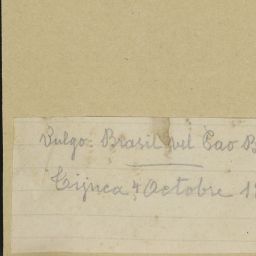 Vulgo: Brasil vel Pao B
Tijuca 4 Octobre 1